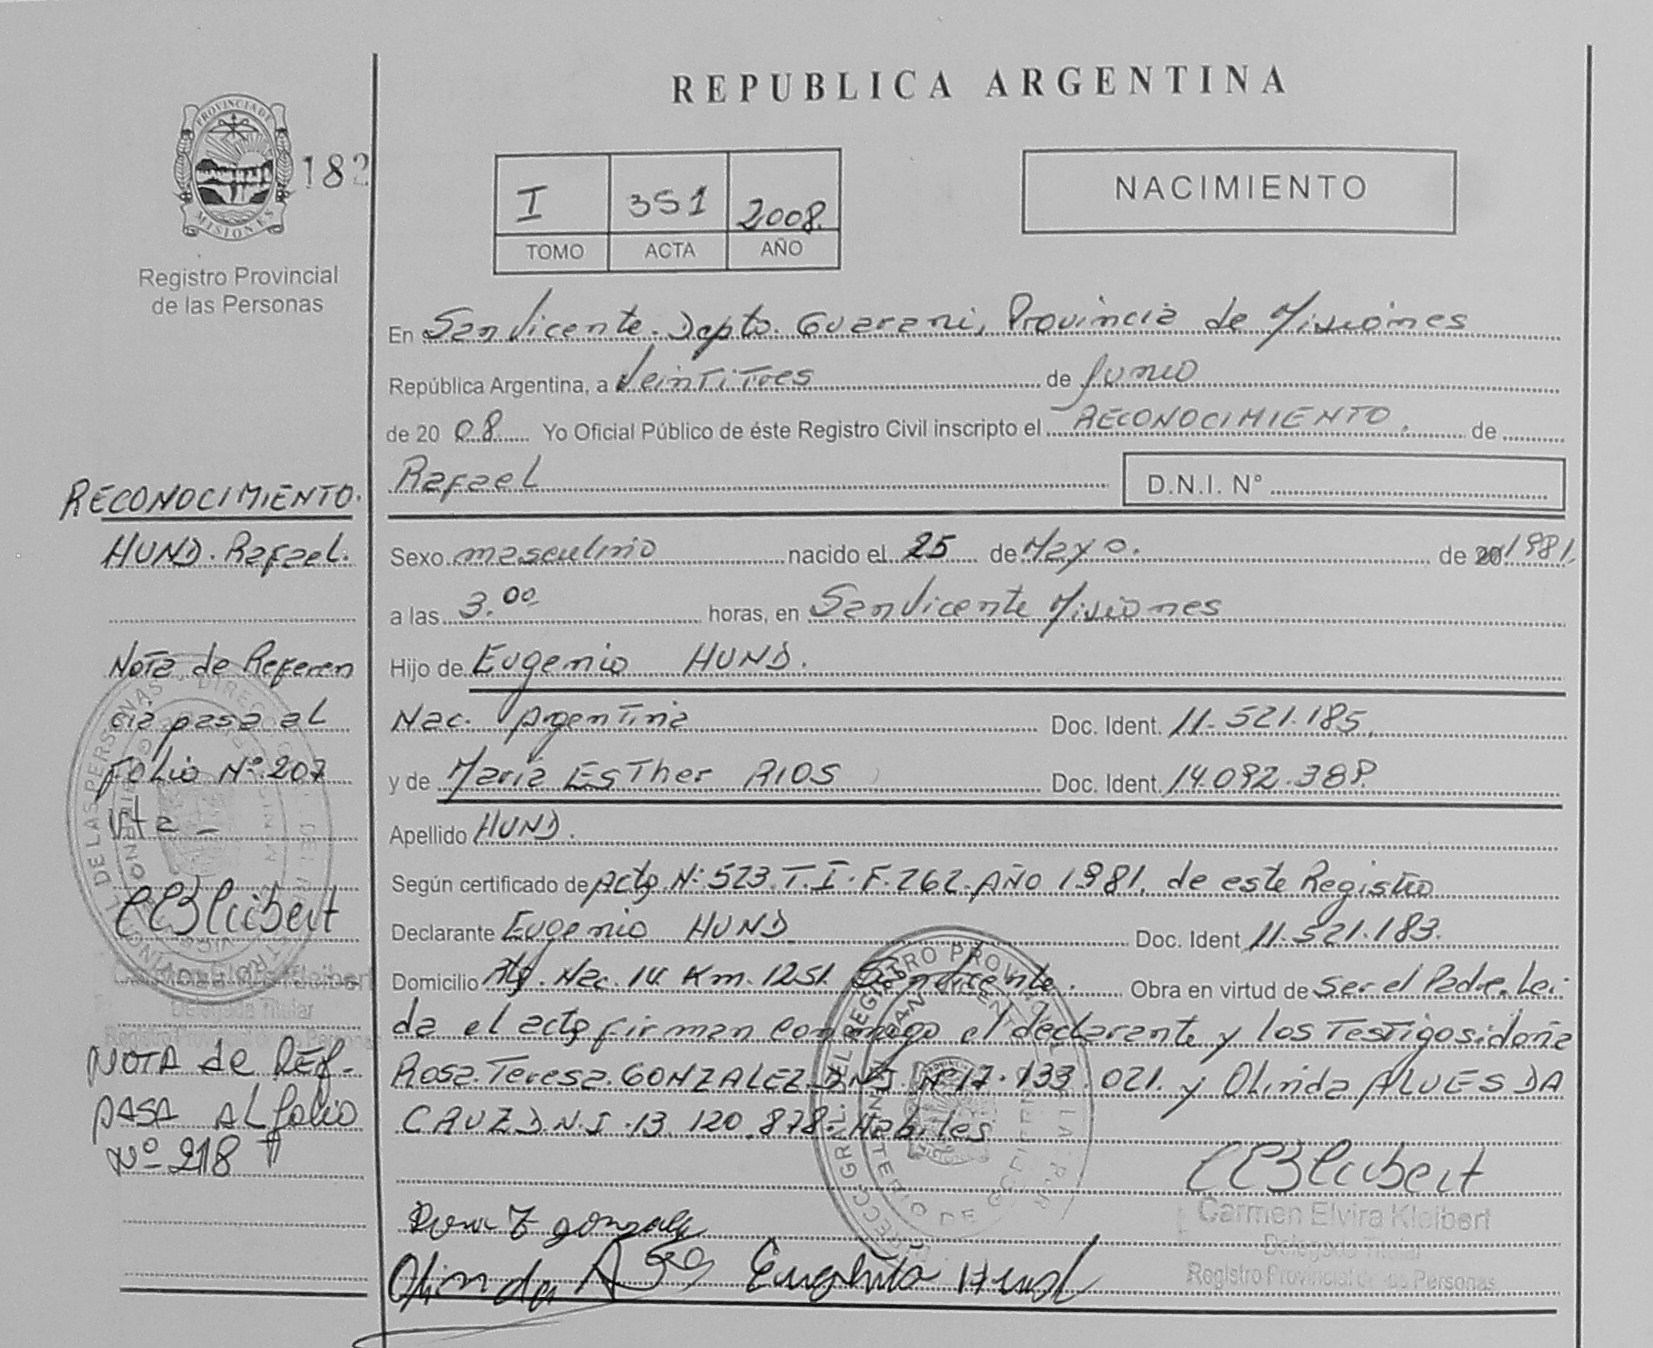 REPUBLICA ARGENTINA
PROVINCIA DE
MISIONES
182
Registro Provincial
de las Personas
I 351 2008.
TOMO ACTA AÑO
NACIMIENTO
En San Vicente. Dapto. Guarani, Provincia de Misiones
República Argentina, a Veintitres de Junio
de 20 08 Yo Oficial Público de éste Registro Civil inscripto el RECONOCIMIENTO. de
Rafael D.N.I. N°
Sexo masculino nacido el 25 de Mayo. de 20 1981.
a las 3.00 horas, en San Vicente Misiones
Hijo de Eugenio HUND.
Nac. Argentina Doc. Ident. 11.521.185.
y de Maria Esther RIOS Doc. Ident. 14.092.388.
Apellido HUND.
Según certificado de Acta N: 523. T. I. F. 262. AÑO 1981. de este Registro
Declarante Eugenio HUND Doc. Ident 11.521.183.
Domicilio Nac. 14 Km. 1251. San Vicente. Obra en virtud de ser el Padre. Lei
da el acta firman conmigo el declarante y los Testigos: doña
Rosa. Teresa. GONZALEZ DNI Nº 17.133.021. y Olinda ALVES DA
CRUZ D.N.I. 13.120.878. Habiles
Carmen Elvira Kleibert
Delegada Titular
Registro Provincial de las Personas
Olinda
Eugenio Hund
RECONOCIMIENTO.
HUND. Rafael.
Nota de Referen
cia pasa al
Folio Nº 207
Vta -
Kleibert
Delegada Titular
Registro Provincial de las Personas
NOTA de REF.
PASA AL folio
Nº 218